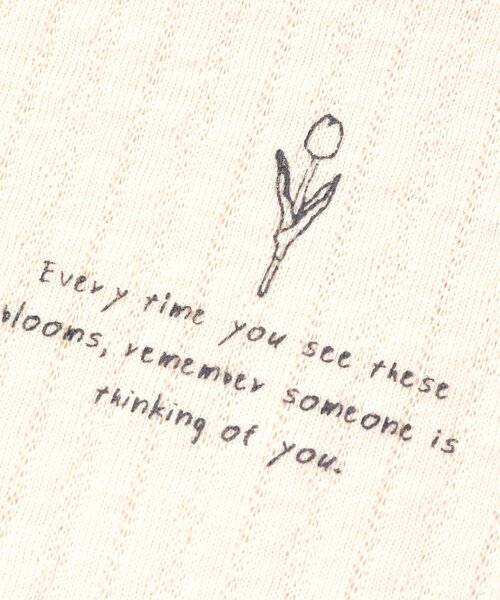 Every time you see these
blooms, remember someone is
thinking of you.